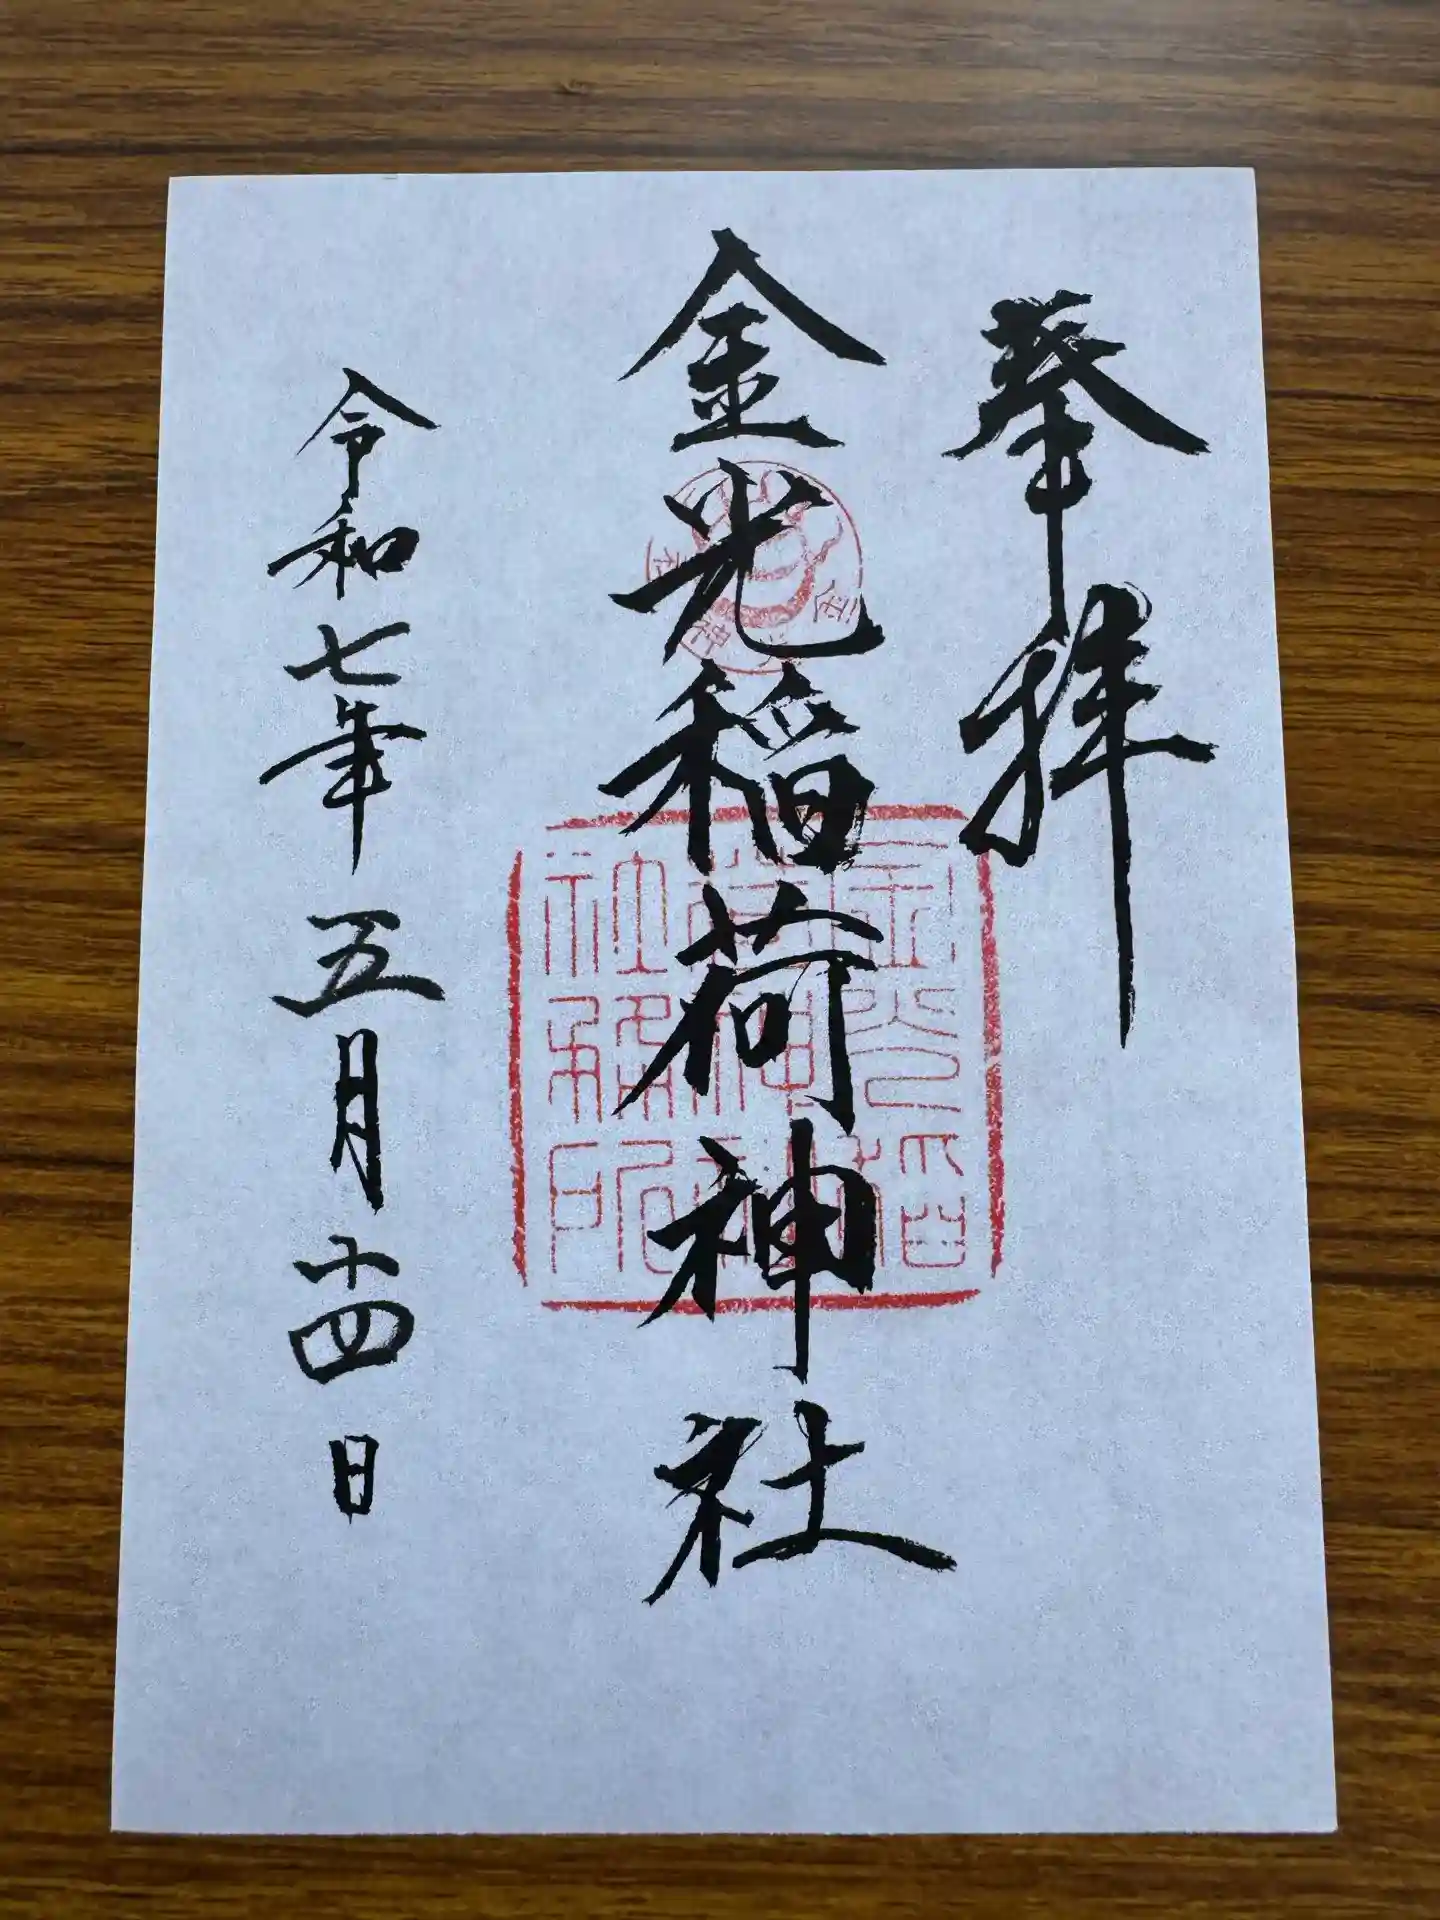 奉拝
金光稲荷神社
令和七年五月十四日
金光稲
荷神社
社務所